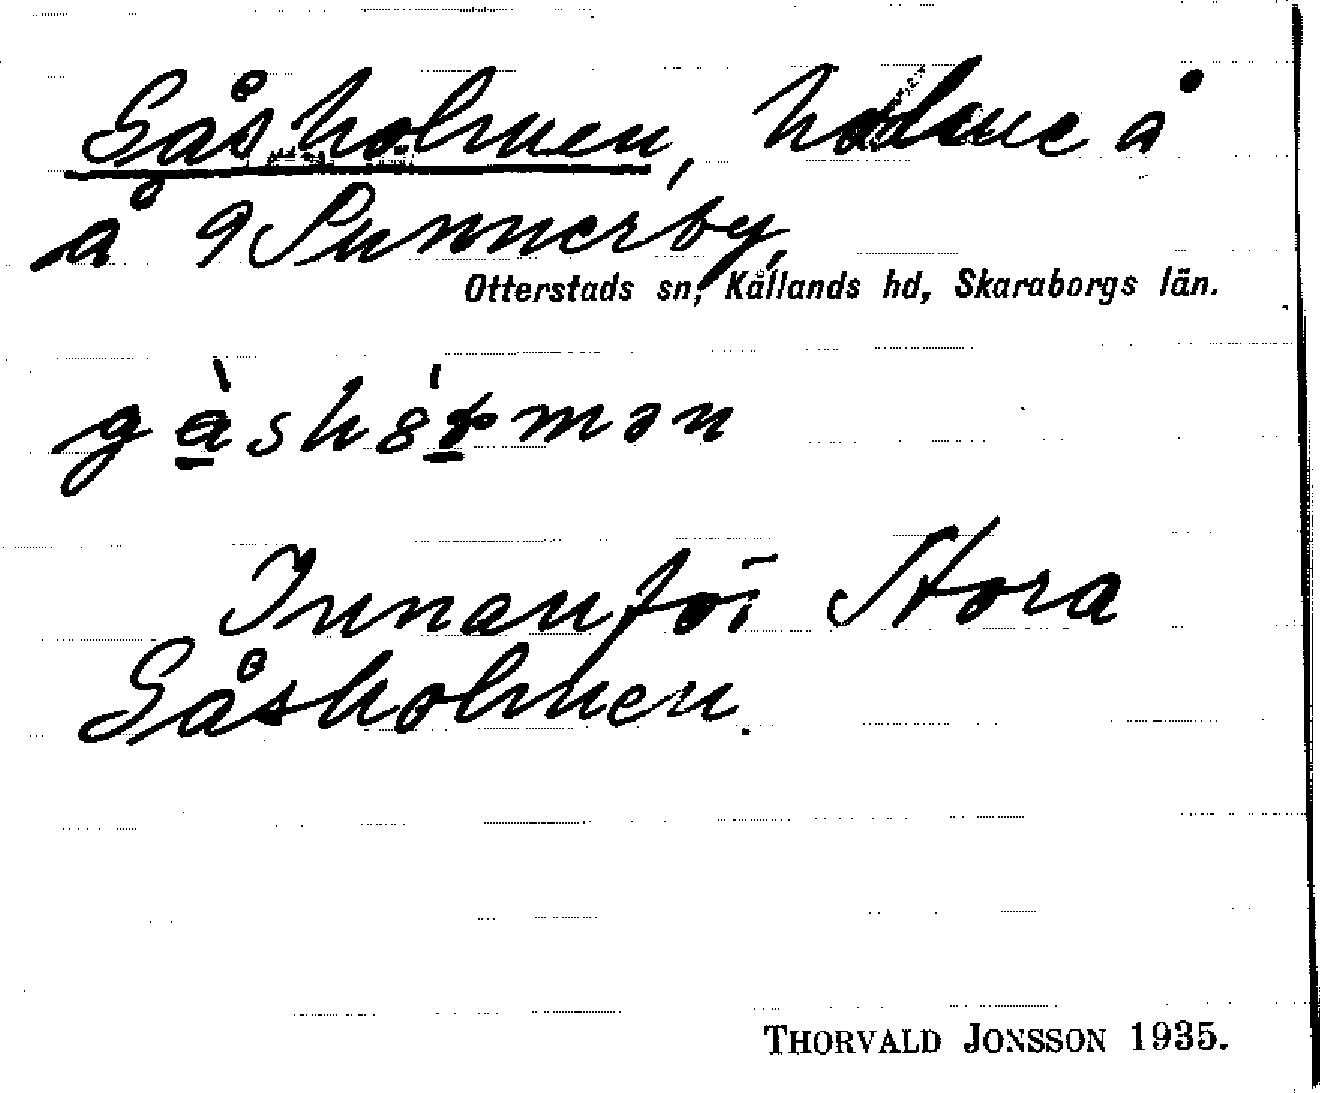 Gåsholmen, holme å
å 9 Sunnerby,
Otterstads sn, Kållands hd, Skaraborgs län.
Innanför Stora
Gåsholmen.
THORVALD JONSSON 1935.